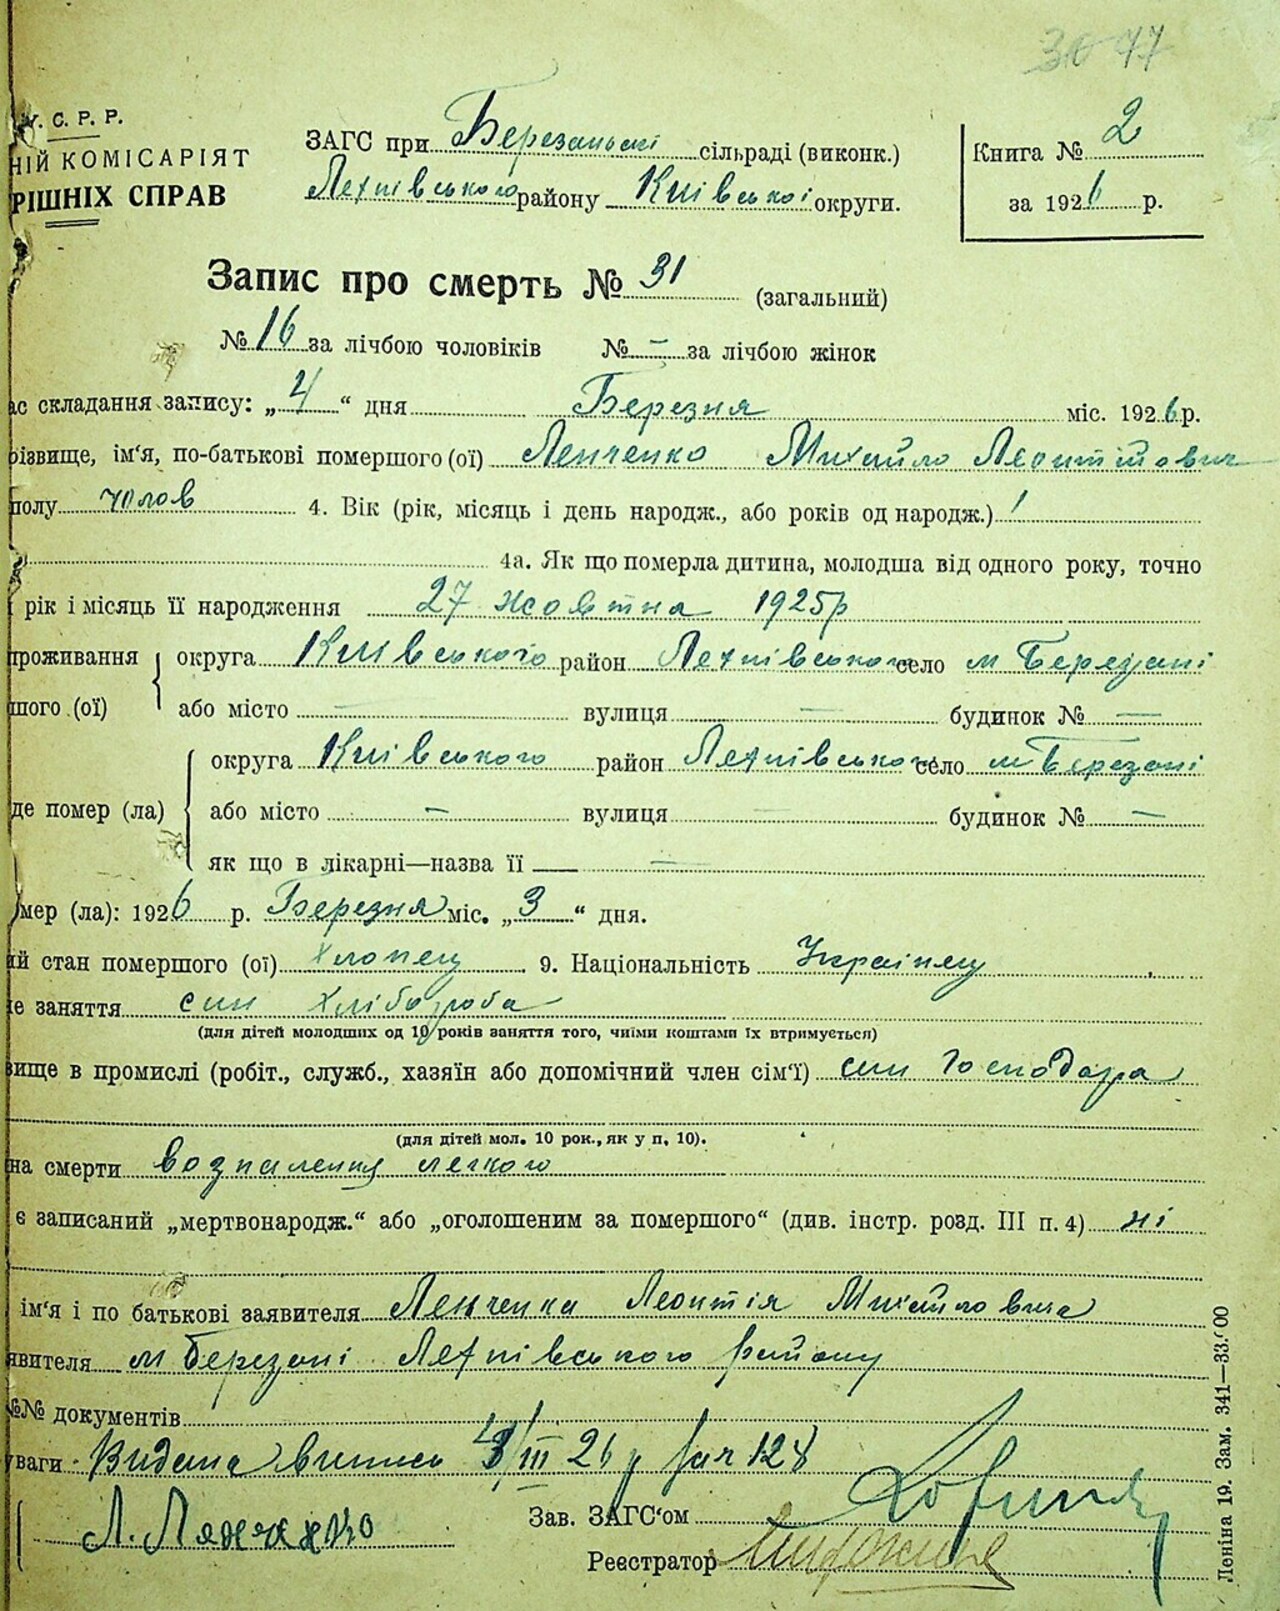 77
У. С. Р. Р.
НІЙ КОМІСАРІЯТ
РІШНІХ СПРАВ
ЗАГС при Березанські сільраді (виконк.)
району Київської округи.
Книга № 2
за 1926 р.
Запис про смерть № 31 (загальний)
№ 16 за лічбою чоловіків № – за лічбою жінок
ас складання запису: „4“ дня Березня міс. 1926 р.
різвище, ім'я, по-батькові помершого (ої) Ленченко Михайло Леонтійович
полу чолов 4. Вік (рік, місяць і день народж., або років од народж.)
4а. Як що померла дитина, молодша від одного року, точно
рік і місяць її народження 27 жовтня 1925р
проживання округа Київського район село м Березані
шого (ої) або місто — вулиця — будинок № —
округа Київського район село м Березоні
де помер (ла) або місто – вулиця — будинок № —
як що в лікарні—назва її —
мер (ла): 1926 р. Березня міс. „3“ дня.
ий стан помершого (ої) хлопец 9. Національність Українец
е заняття син хлібороба
(для дітей молодших од 10 років заняття того, чиїми коштами їх втримується)
вище в промислі (робіт., служб., хазяїн або допомічний член сім'ї) син Господара
(для дітей мол. 10 рок., як у п. 10).
на смерти возпалення легкого
є записаний „мертвонародж.“ або „оголошеним за помершого“ (див. інстр. розд. III п. 4) ні
ім'я і по батькові заявителя Ленченка Леонтія Михайловича
явителя м Березоні району
№№ документів
уваги Видана випись III 26 р 128
Зав. ЗАГС'ом
Реєстратор
Леніна 19. Зам. 341—33.